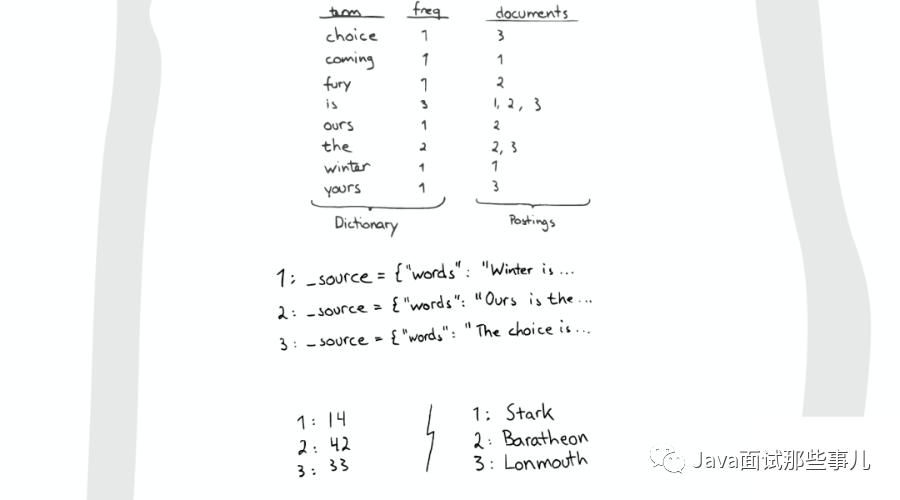 term freq documents
choice 1 3
coming 1 1
fury 1 2
is 3 1, 2, 3
ours 1 2
the 2 2, 3
winter 1 1
yours 1 3
Dictionary Postings
1: _source = {"words": "Winter is ...
2: _source = {"words": "Ours is the ...
3: _source = {"words": "The choice is...
1: 14 1: Stark
2: 42 2: Baratheon
3: 33 3: Lonmouth
Java面试那些事儿